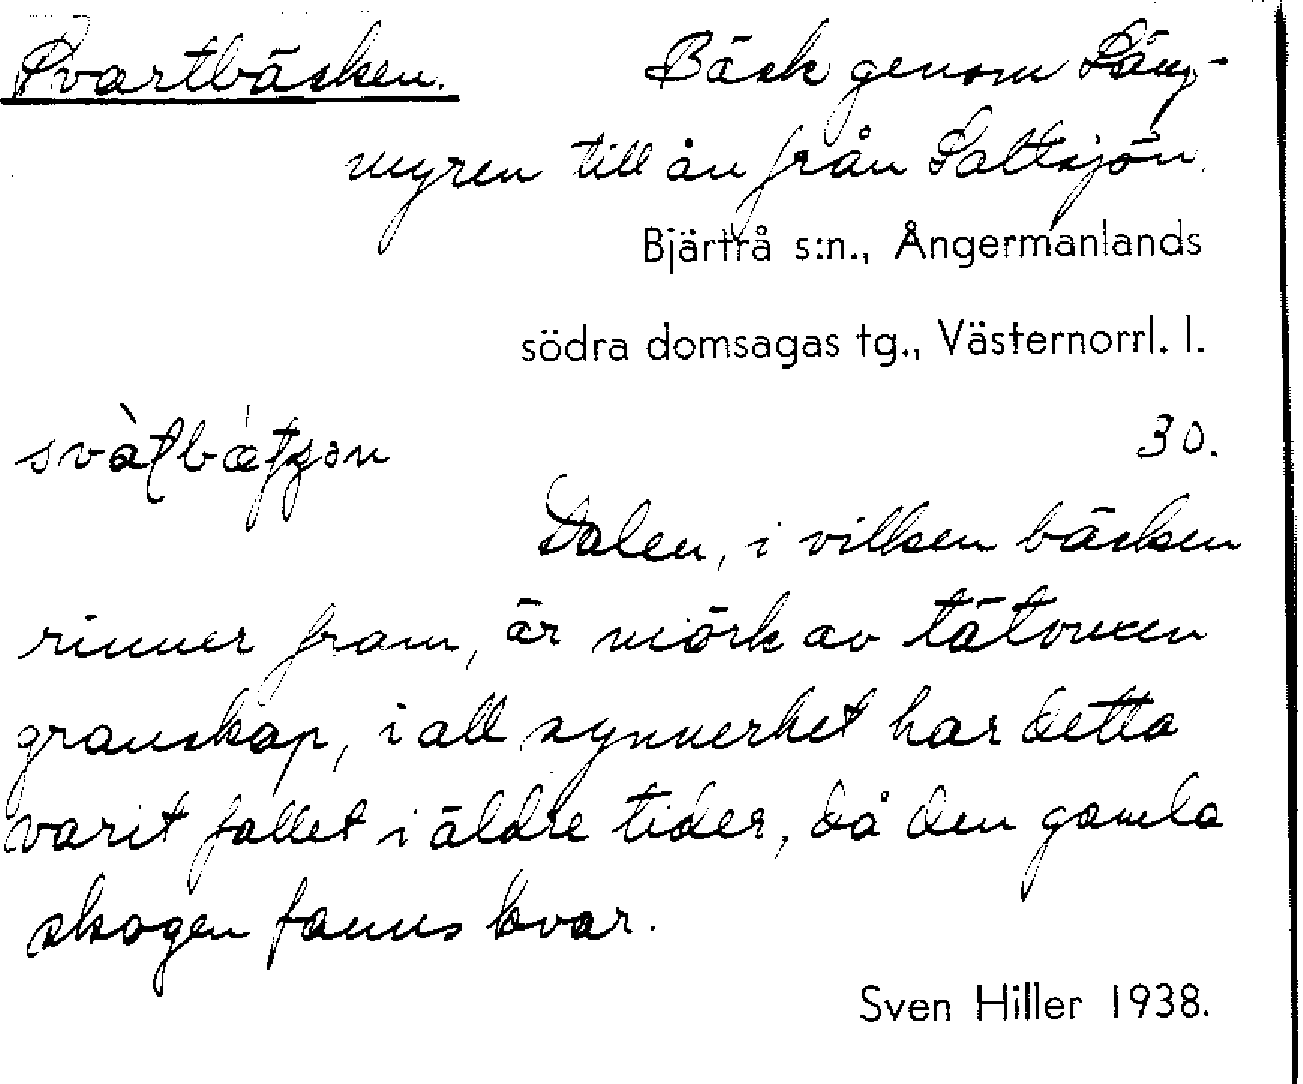 Svartbäcken. Bäck genom Lång-
myren till ån från Saltsjön.
Bjärtrå s:n., Ångermanlands
södra domsagas tg., Västernorrl. l.
30.
Dalen, i vilken bäcken
rinner fram, är mörk av tätvuxen
granskap, i all synnerhet har detta
varit fallet i äldre tider, då den gamla
skogen fanns kvar.
Sven Hiller 1938.